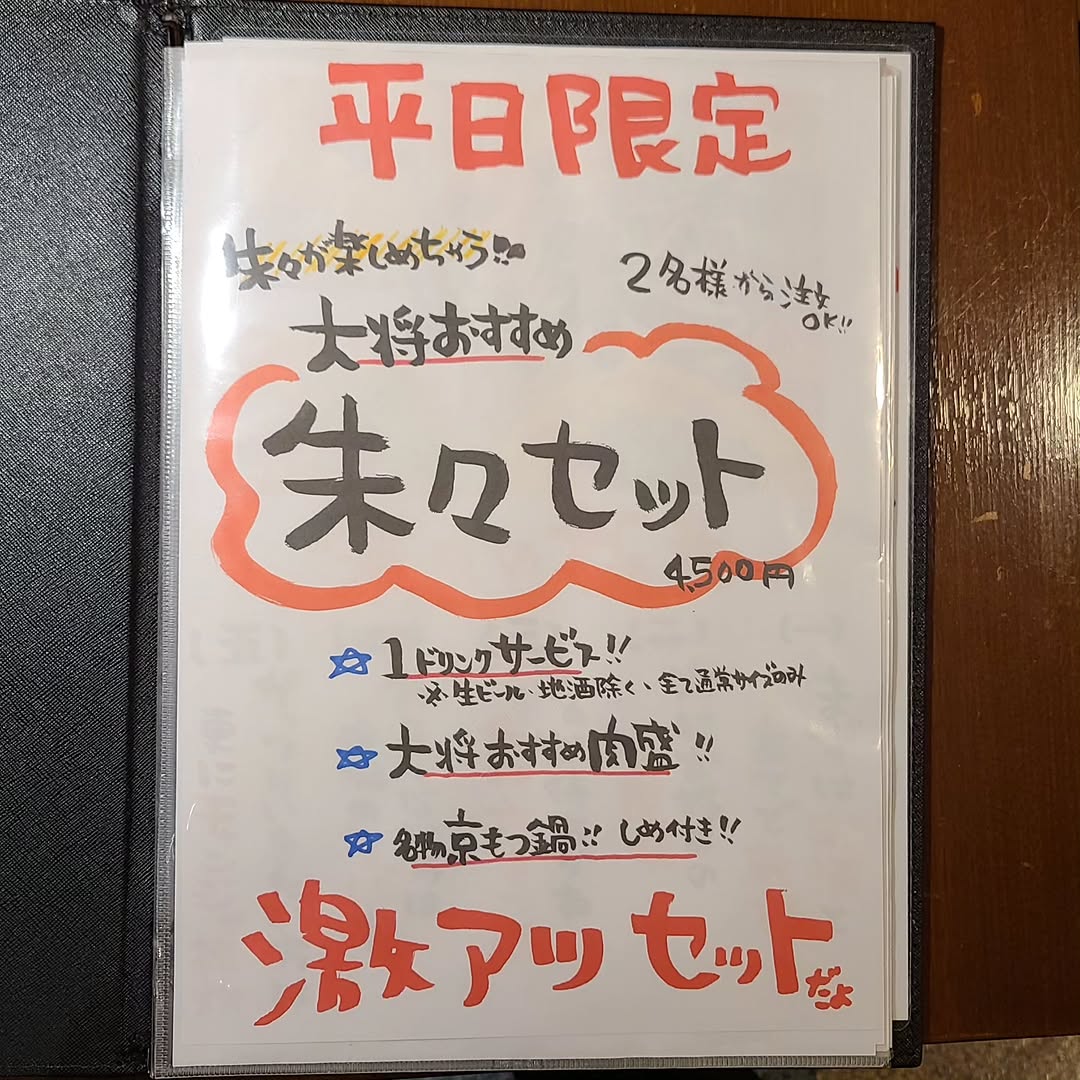 平日限定
朱々が楽しめちゃう!!
2名様から注文
OK!!
大将おすすめ
朱々セット
4,500円
☆ 1ドリンクサービス!!
※生ビール・地酒除く、全て通常サイズのみ
☆ 大将おすすめ肉盛!!
☆ 名物京もつ鍋!! しめ付き!!
激アツセットだよ